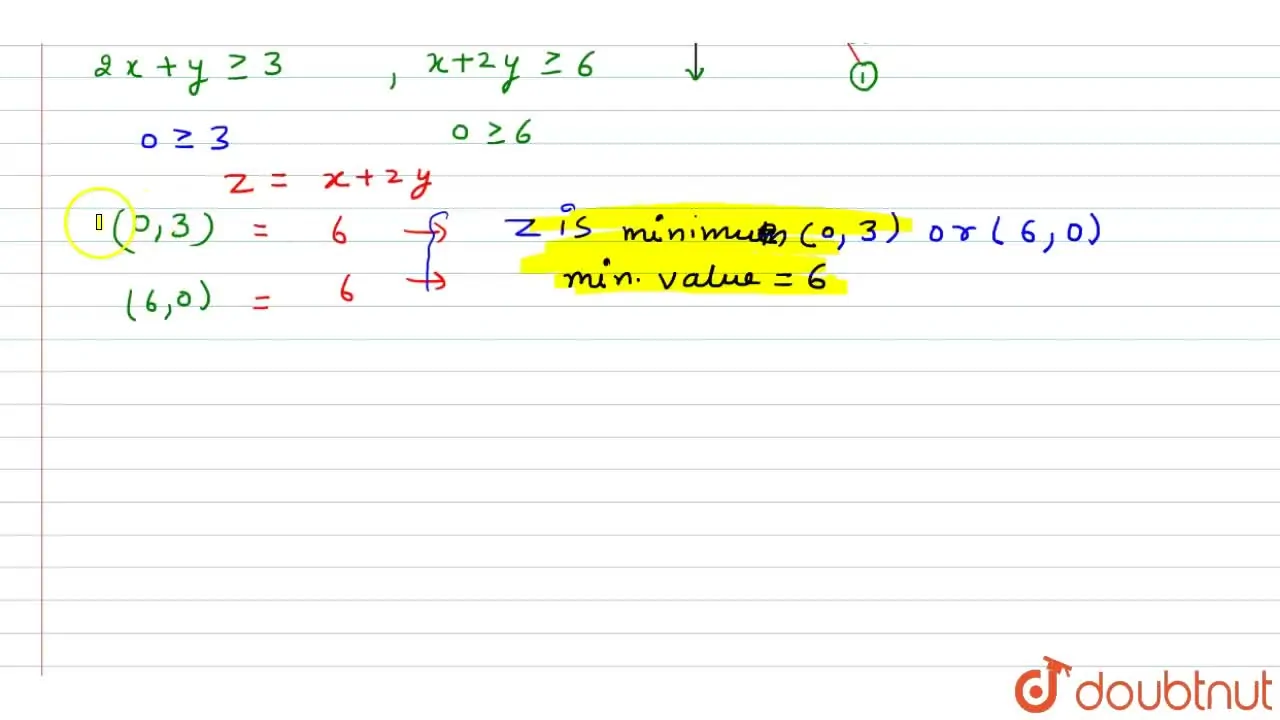 2x + y ≥ 3 , x + 2y ≥ 6
1
0 ≥ 3 0 ≥ 6
Z = x + 2y
(0,3) = 6 → Z is minimum (0,3) or (6,0)
(6,0) = 6 → min. value = 6
doubtnut